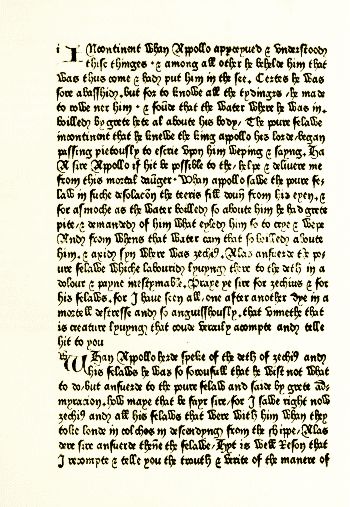 i INcontinent whan Appollo apperceyued & vnderstoody
these thinges · & among all other he behelde him that
was thus come & hady put him in the see. Certes he was
sore abasshidy. but for to knowe all the tydinges / he made
to rowe ner him · & foude that the water where he was in.
boilledy by grete hete al aboute his body / The poure felawe
incontinent that he knewe the king appollo his lorde / began
passing pietously to escrie vpon him weping & sayng. Ha
A sire Appollo if hit be possible to the / helpe & delivere me
from this mortal daūger · Whan appollo sawe the poure fe-
law in suche desolacōn the teeris fill doun from his eyen / &
for asmoche as the water boilledy so aboute him he had grete
pite / & demandedy of him what eyledy him so to crye & wepe
Andy from whens that water cam that so boilledy aboute
him. & axidy fyn where was zechis. Alas ansuerde the po-
ure felawe whiche labouridy lyuyngy there to the deth in a
dolour & payne inestymable. Praye ye sire for zechius & for
his felawes. for I haue seen all one after another dye in a
mortell destresse andy so anguisshously. that vnnethe that
is creature lyuyngy that coude veraily acompte andy telle
hit to you
WHan Appollo herde speke of the deth of zechis andy
his felawes he was so sorowfull that he wist not what
to do / but ansuerde to the poure felaw and saide by grete ad-
myracion. how maye that be fayr sire. for I sawe right now
zechis andy all his felaws that were with him whan they
toke londe in colchos in descendyngy fro the shippe / Alas
dere sire ansuerde thēne the felawe / hyt is well reson that
I recompte & telle you the trouth & verite of the manere of